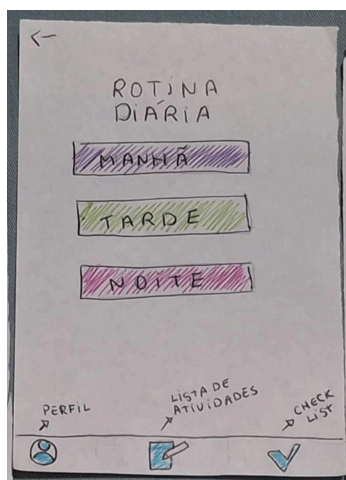 ROTINA
DIÁRIA
MANHÃ
TARDE
NOITE
PERFIL
LISTA DE
ATIVIDADES
CHECK
LIST